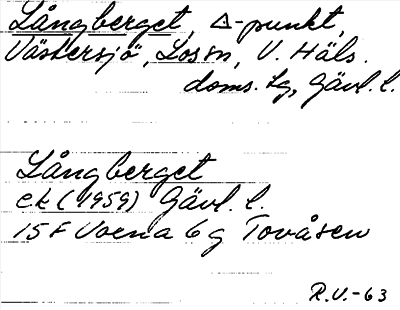 Långberget, Δ-punkt,
Västersjö, Los sn, V. Häls.
doms. tg, Gävl. l.
Långberget
ek (1959) Gävl. l.
15 F Voxna 6 g Tovåsen
R.V.-63